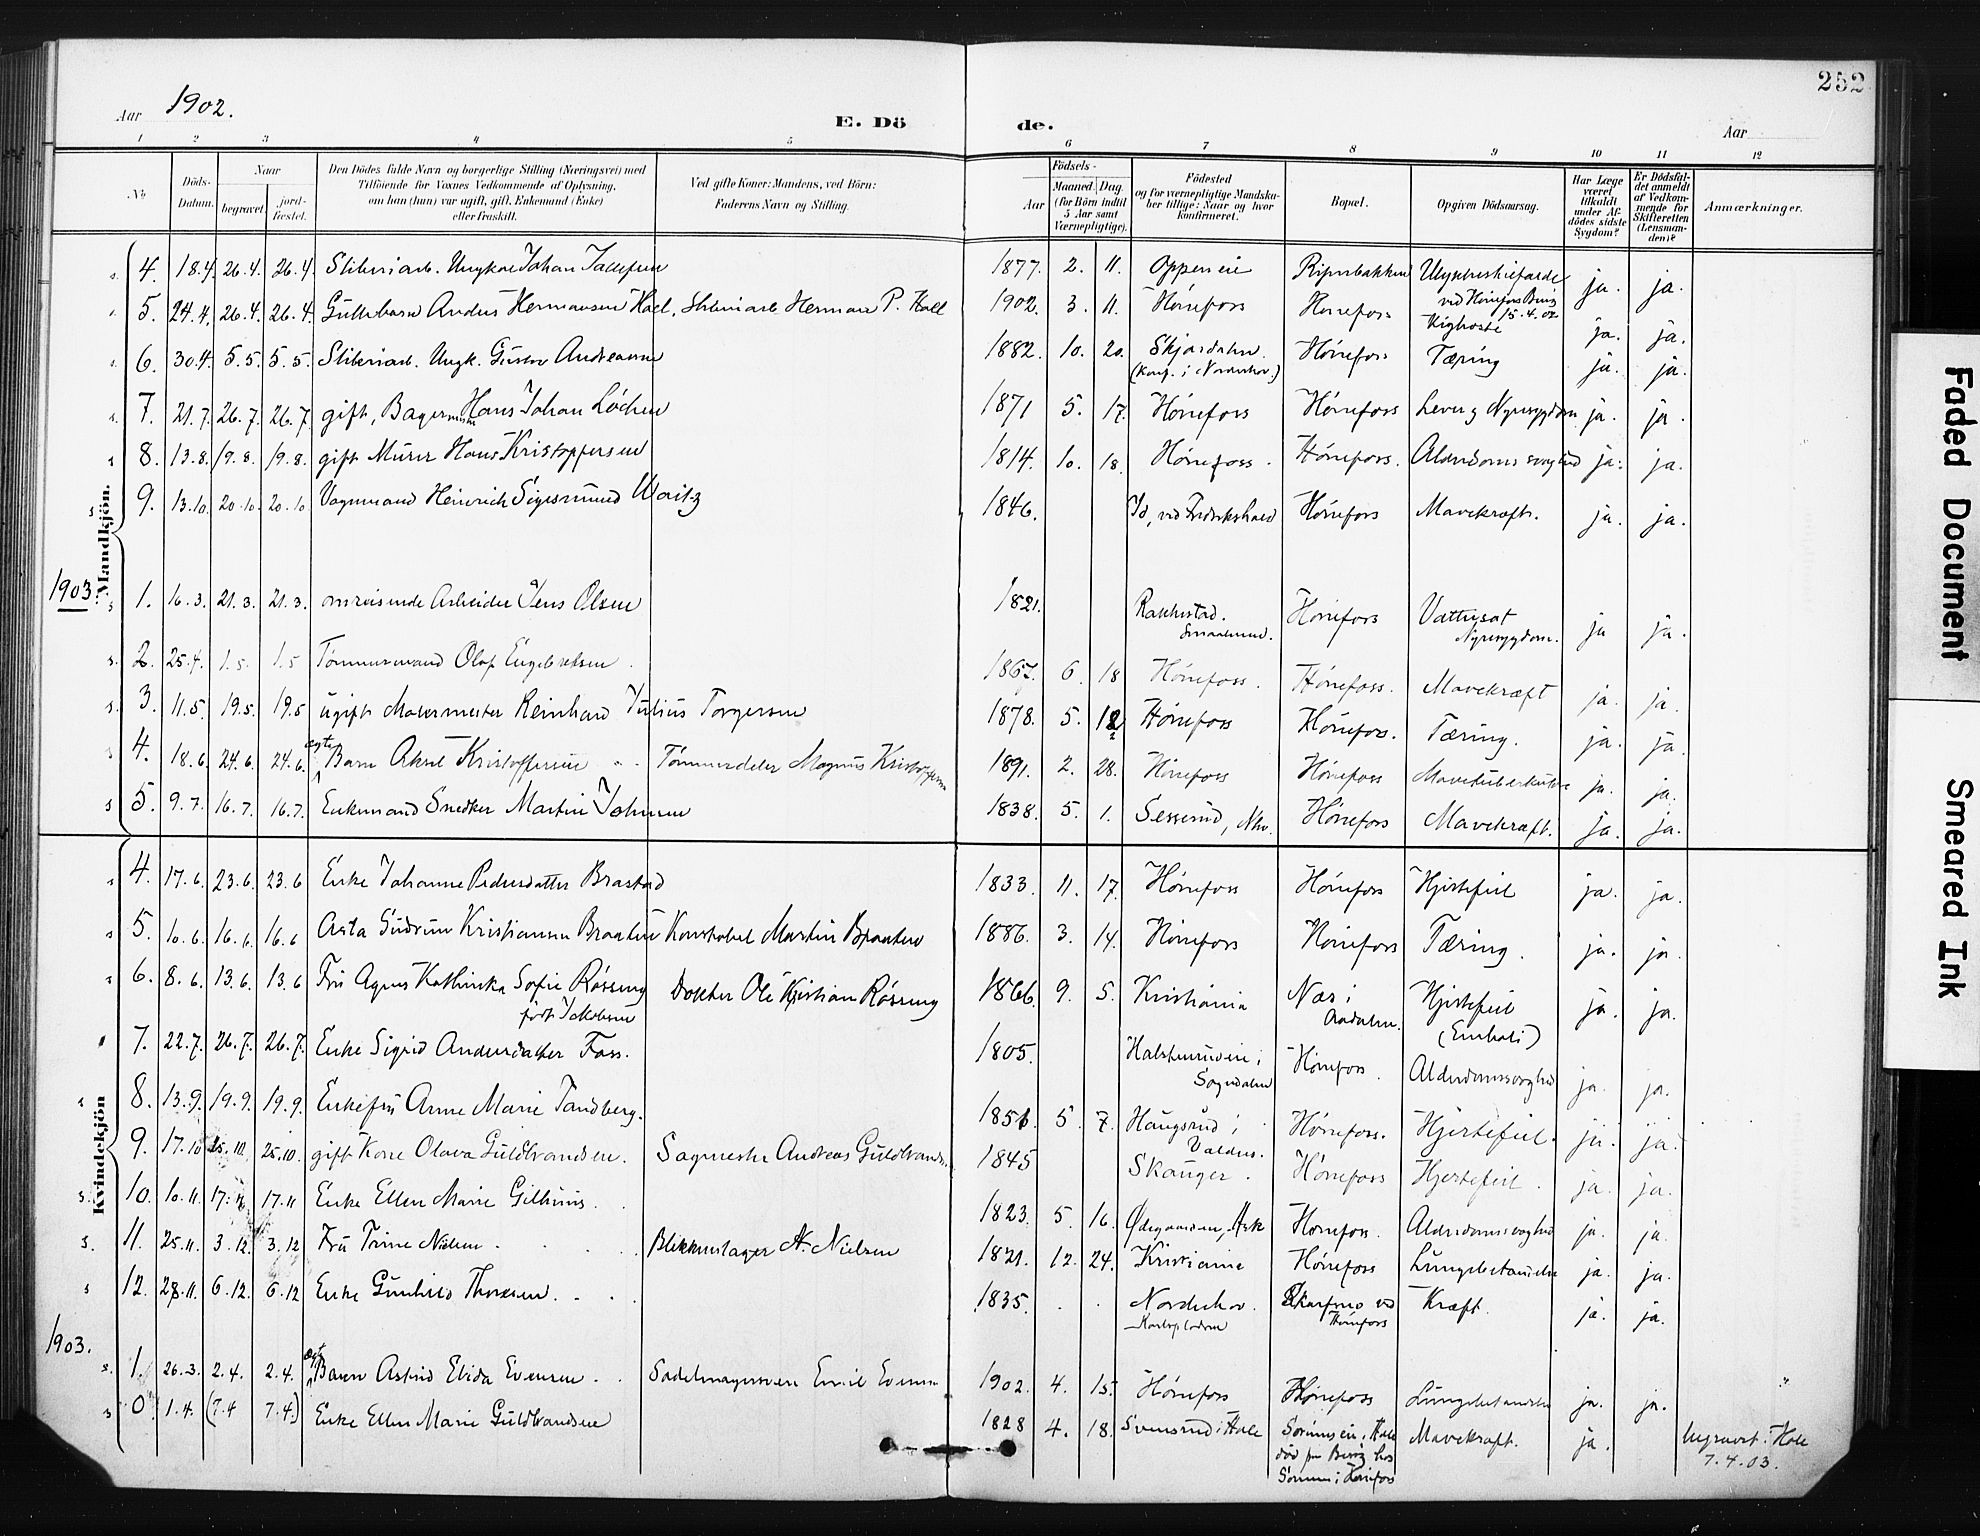 252
Aar 1902.
E. Döde.
Aar
1 2 3 4 5 6 7 8 9 10 11 12
No
Döds-Datum.
Naar
begravet.
jordfæstet.
Den Dödes fulde Navn og borgerlige Stilling (Næringsvei) med
Tilföiende for Voxnes Vedkommende af Oplysning,
om han (hun) var ugift, gift, Enkemand (Enke)
eller fraskilt.
Ved gifte Koner: Mandens, ved Börn:
Faderens Navn og Stilling.
Födsels-
Aar
Maaned.
Dag.
(for Börn indtil
5 Aar samt
Værnepligtige).
Födested
og for værnepligtige Mandska-
ber tillige: Naar og hvor
konfirmeret.
Bopæl.
Opgiven Dödsaarsag.
Har Læge
været
tilkaldt
under Af-
dödes sidste
Sygdom?
Er Dödsfal-
det anmeldt
af Vedkom-
mende for
Skifteretten
(Lensman-
den)?
Anmærkninger.
Mandkjön.
4. 18.4. 26.4. 26.4. Sliberiarb. Ungkarl Johan 1877. 2. 11. ja. ja.
ved Hønefos Brug 15.4.02
5. 24.4. 26.4. 26.4. Guttebarn Anders Hermansen Hael, Sliberiarb. Herman P. Hall 1902. 3. 11. Hønefoss Hønefoss Kighoste ja. ja.
6. 30.4. 5.5. 5.5. Sliberiarb. Ungk. Gustav Andreasen 1882. 10. 20. Skjærdalen. (Konf. i Norderhov.) Hønefoss Tæring ja. ja.
7. 21.7. 26.7. 26.7. gift, Bagermester Hans Johan Löchen 1871 5. 17. Hønefoss Hønefoss Lever og Nyresygdom ja. ja.
8. 13.8. 19.8. 19.8. gift Murer Hans Kristoffersen 1814. 10. 18. Hønefoss. Hønefoss. Alderdomssvaghed ja. ja.
9. 13.10. 20.10. 20.10. Vognmand Heinrich Sigismund Waitz 1846. Id, ved Fredrikshald Hønefoss Mavekræft. ja. ja.
1903.
1. 16.3. 21.3. 21.3. omreisende Arbeider Jens Olsen 1821. Rakkestad. Smaalenene. Hønefoss Vattersot Nyresygdom. ja ja.
2. 25.4. 1.5. 1.5 Tømmermand Olaf Engebretsen. 1867. 6. 18 Hønefoss. Hønefoss. Mavekræft ja. ja.
3. 11.5. 19.5. 19.5 ugift Malermester Reinhard Julius Torgersen 1878. 5. 12 Hønefoss Hønefoss. Tæring. ja. ja.
4. 18.6. 24.6. 24.6. ægte Barn Aksel Kristoffersen Tømmerdeler Magnus Kristoffersen 1891. 2. 28. Hønefoss Hønefoss Mavetuberkulose ja. ja.
5. 9.7. 16.7. 16.7. Enkemand Snedker Martin Johnsen 1838. 5. 1. Sesserud, Nhv. Hønefoss Mavekræft. ja. ja.
Kvindekjön
4. 17.6. 23.6. 23.6 Enke Johanne Pedersdatter Brastad 1833. 11. 17. Hønefoss Hønefoss Hjertefeil ja. ja.
5. 10.6. 16.6. 16.6 Asta Gudrun Kristiansen Braaten Konstabel Martin Braaten 1886. 3. 14. Hønefoss Hønefoss Tæring. ja. ja.
6. 8.6. 13.6. 13.6 Fru Agnes Kathinka Sofie Røssing født Jakobsen Doktor Ole Kristian Røssing 1866. 9. 5. Kristiania Næs i Aadalen. Hjertefeil (Emboli) ja. ja.
7. 22.7. 26.7. 26.7. Enke Sigrid Andersdatter Foss. 1805. i Sognedalen Hønefoss. Alderdomssvaghed ja. ja.
8. 13.9. 19.9. 19.9. Enkefru Anne Marie Tandberg. 1851. 5. 7. Haugsrud i Valdres. Hønefoss. Hjertefeil. ja. ja.
9. 17.10 25.10. 25.10. gift Kone Olava Guldbrandsen. Sagmester Andreas Guldbrandsen 1845 Skauger. Hønefoss Hjertefeil. ja. ja.
10. 10.11. 17.11. 17.11 Enke Ellen Marie Gilhuus. 1823. 5. 16. Ødegaarden, Ask Hønefoss. Alderdomssvaghed ja. ja.
11. 25.11. 3.12. 3.12 Fru Trine Nielsen. Blikkenslager A. Nielsen 1821. 12. 24. Kristiania Hønefoss Lungebetændelse ja. ja.
12. 28.11. 6.12. 6.12 Enke Gunhild Thoresen. 1835. Norderhov. ved Hønefoss Kræft. ja. ja.
1903.
1. 26.3. 2.4. 2.4. ægte Barn Astrid Elida Evensen Sadelmagersvend Emil Evensen 1902. 4. 15. Hønefoss Hønefoss Lungebetændelse ja. ja.
0. 1.4. (7.4 7.4.) Enke Ellen Marie Guldbrandsen 1828 4. 18. Svensrud i Hole Hole død paa Besøg hos i Hønefoss Mavekræft. ja. begravet i Hole
7.4.03.
Faded Document
Smeared Ink